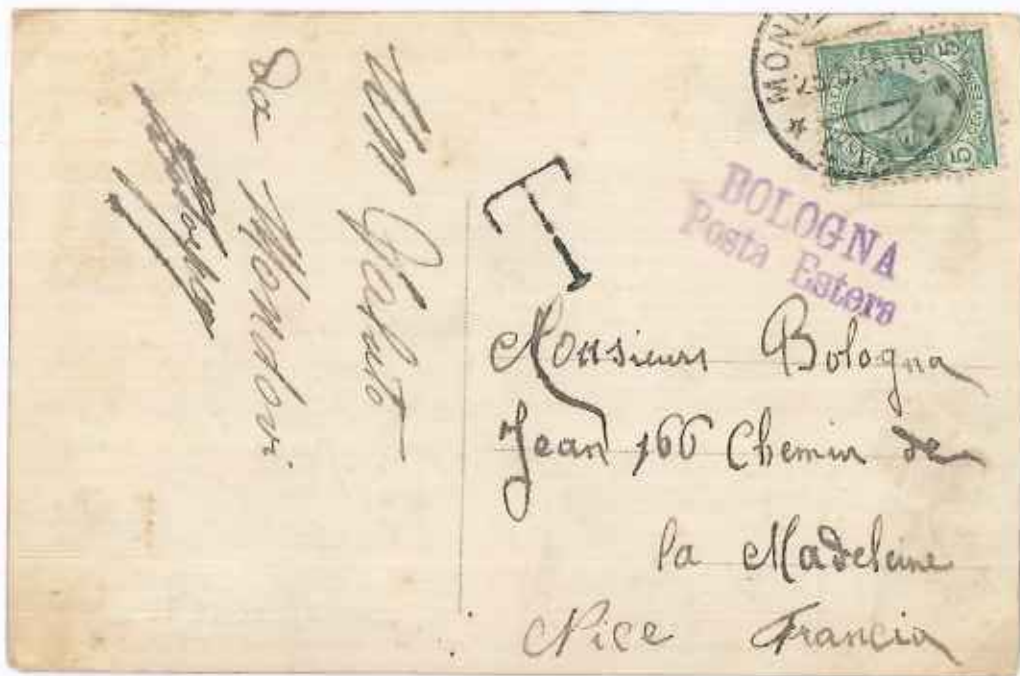 Un Saluto
Da Mondovi
T
BOLOGNA
Posta Estera
5 5
5
Monsieur Bologna
Jean 166 Chemin de
la Madeleine
Nice Francia